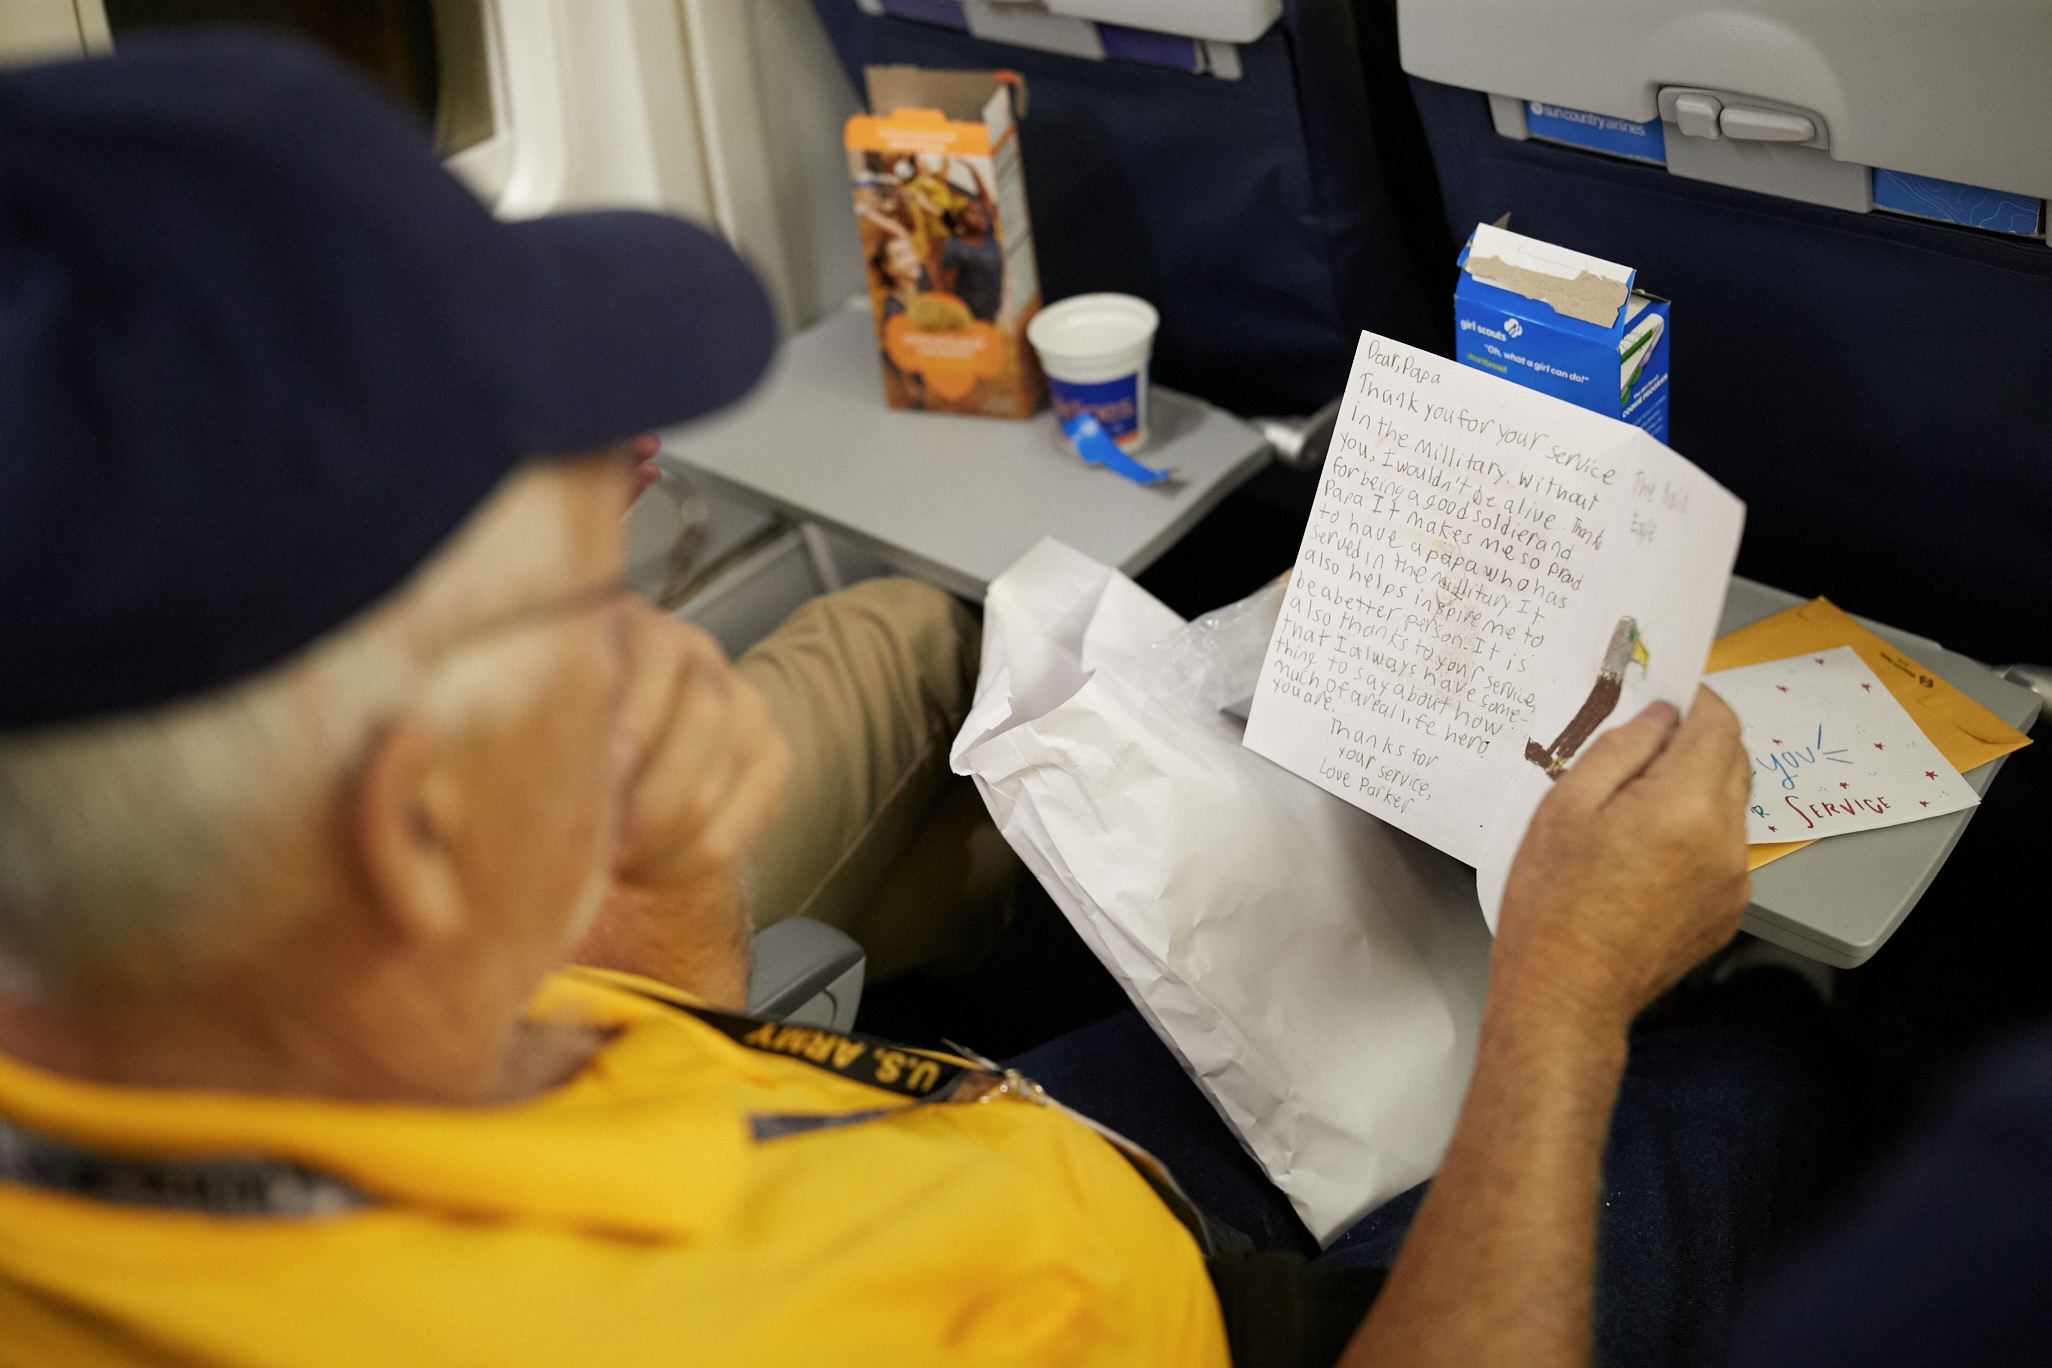 sun country airlines.
girl scouts
"Oh, what a girl can do!"
shortbread
COOKIE PROGRAM
Dear, Papa
Thank you for your service
in the millitary. Without
you, I wouldn't be alive. Thanks
for being a good soldier and
Papa. It makes me so proud
to have a papa who has
served in the millitary. It
also helps inspire me to
be a better person. It is
also thanks to your service,
that I always have some-
thing to say about how
much of a real life hero
you are.
Thanks for
your service,
Love Parker
The Bald
Eagle
YOU
SERVICE
U.S. ARMY